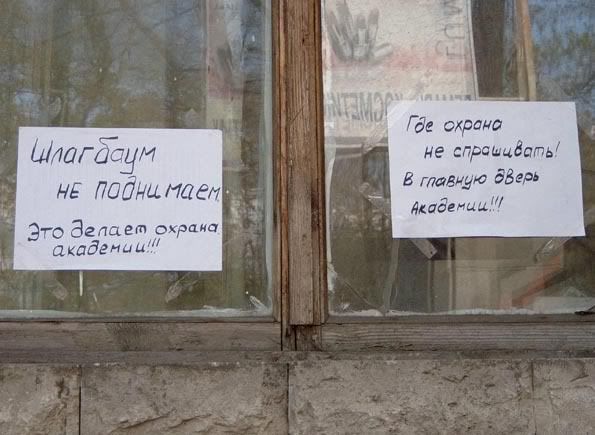 Шлагбаум
не поднимаем.
Это делает охрана
академии!!!
Где охрана
не спрашивать!
В главную дверь
Академии!!!